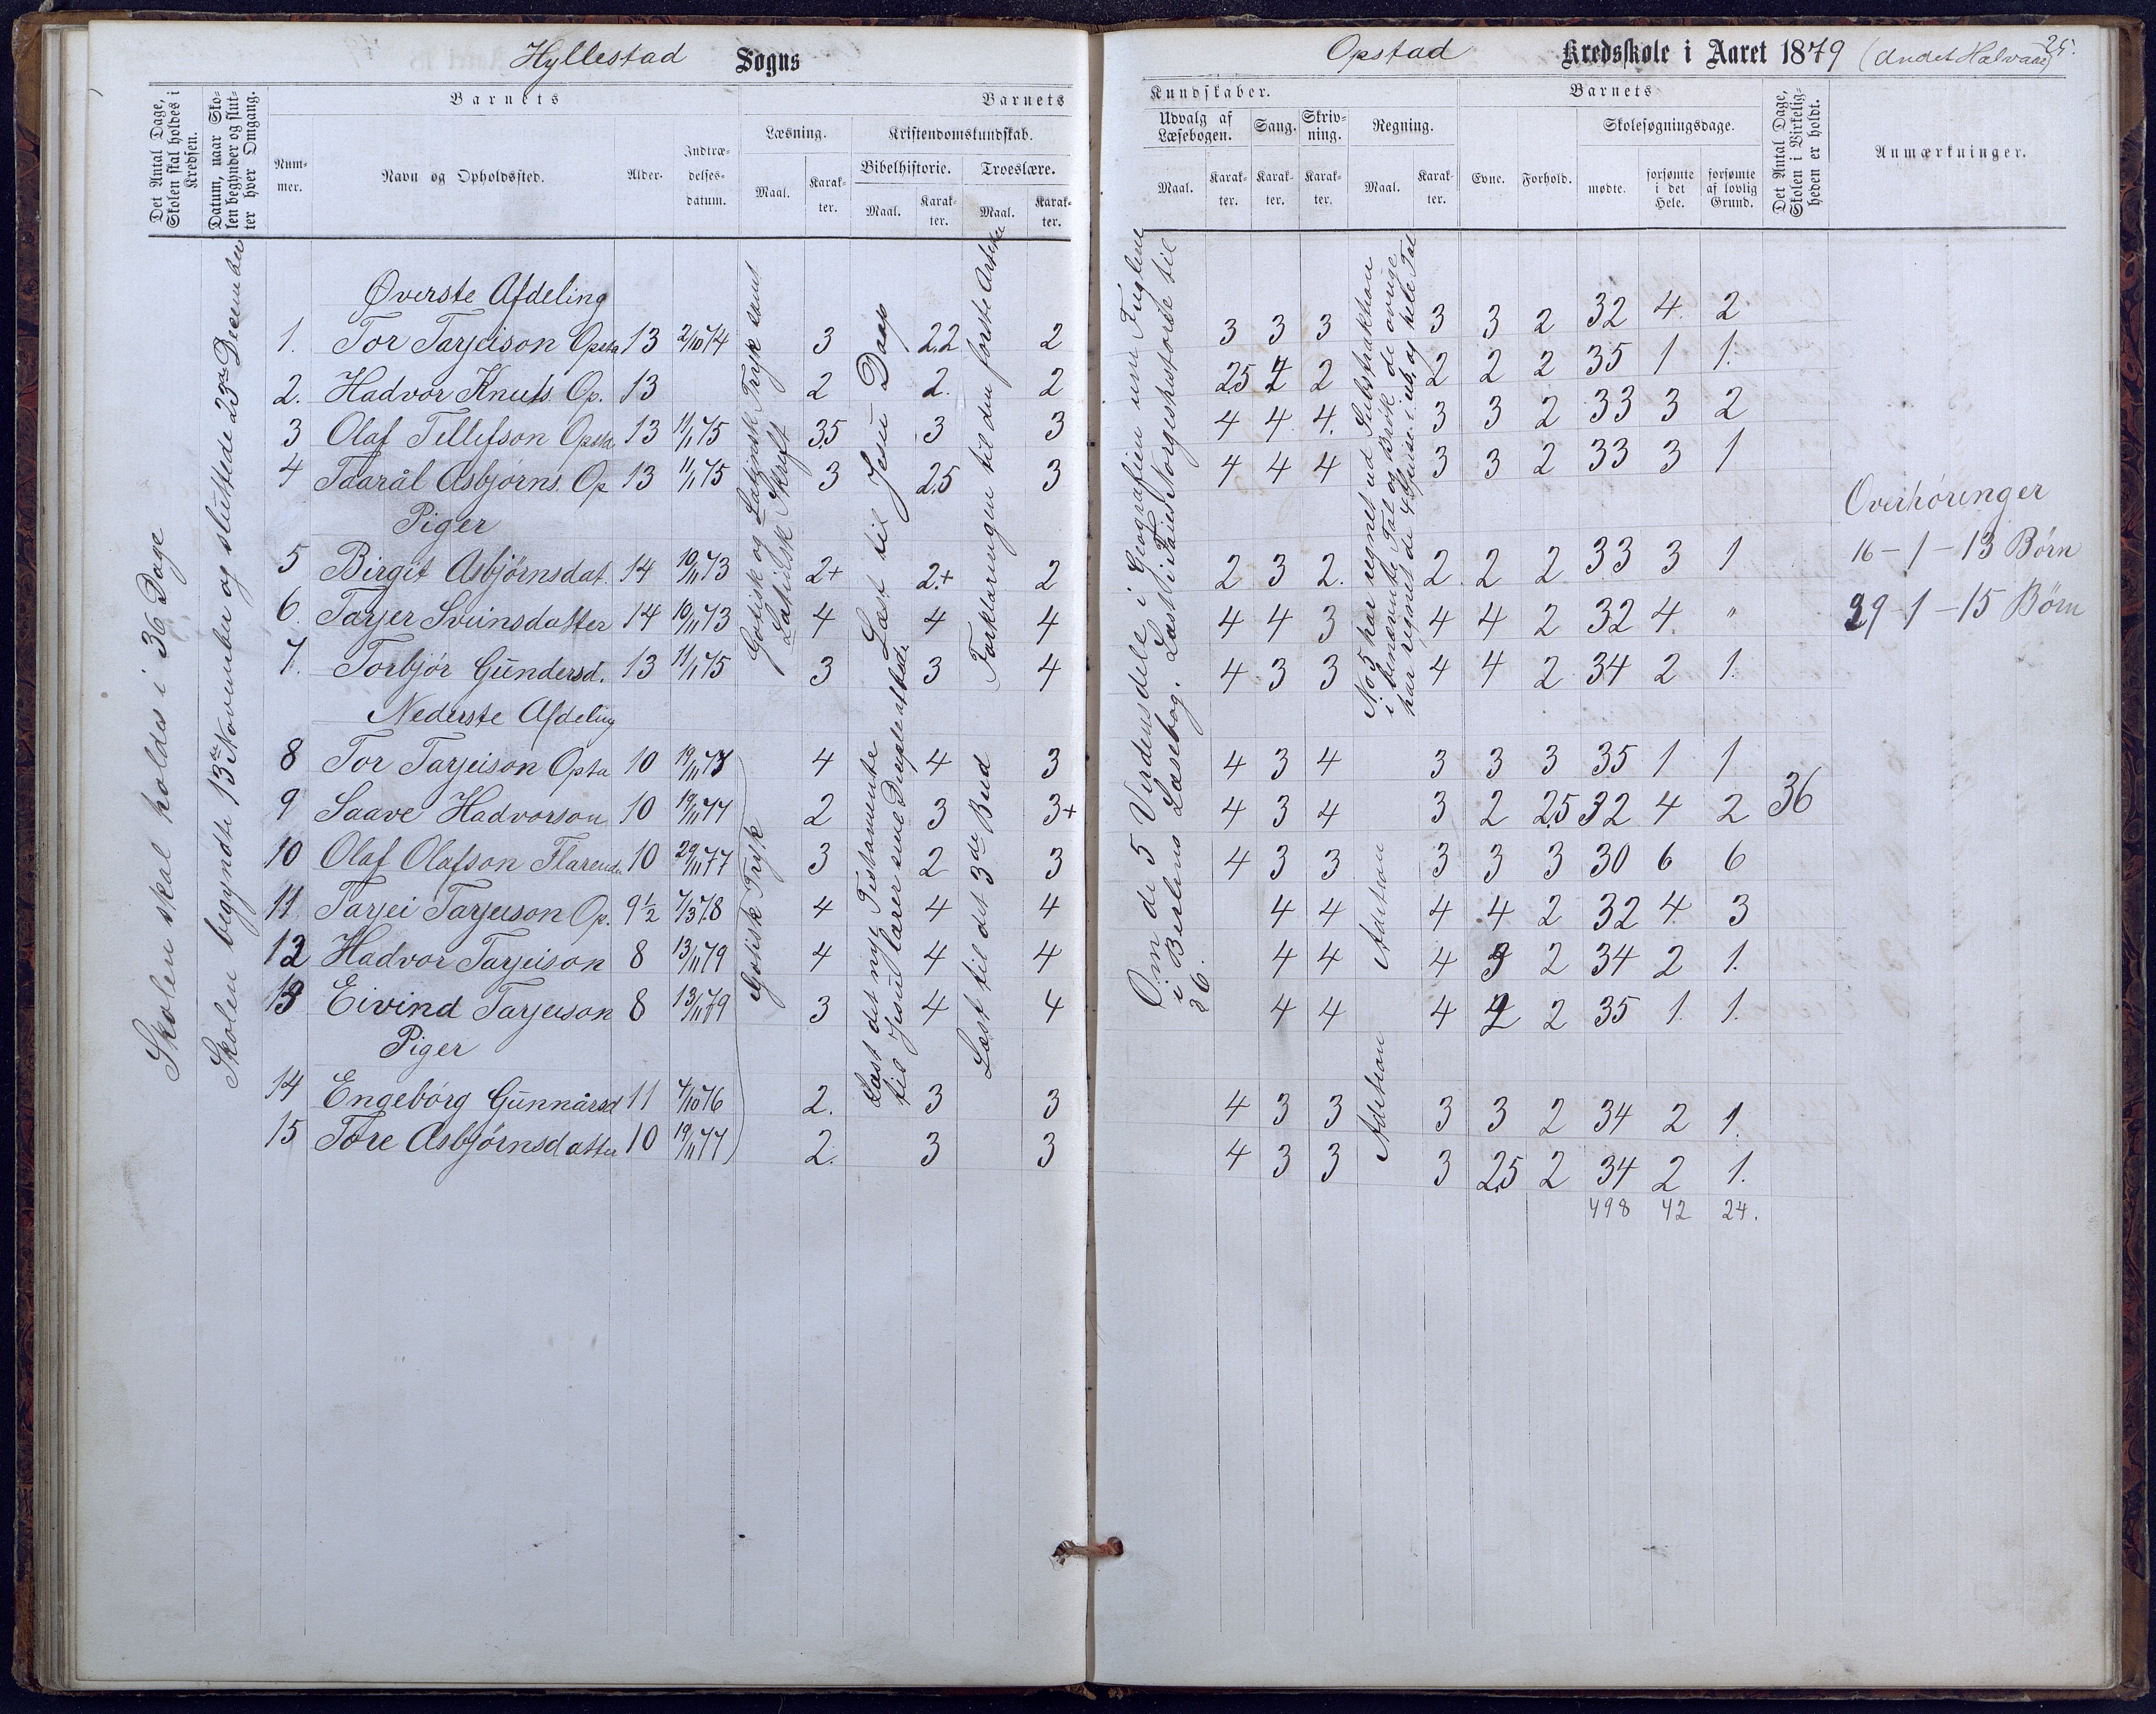 Hyllestad Sogns
Det Antal Dage, Skolen skal holdes i Kredsen.
Datum, naar Skolen begynder og slutter hver Omgang.
Barnets
Barnets
Nummer.
Navn og Opholdssted.
Alder.
Indtrædelsesdatum.
Læsning.
Kristendomskundskab.
Bibelhistorie.
Troeslære.
Maal.
Karakter.
Maal.
Karakter.
Maal.
Karakter.
Skolen skal holdes i 36 Dage
Skolen begyndte 13de November og sluttede 23de December
Øverste Afdeling
1. Tor Tarjeison Opsta 13 2/10 74 3 2.2 2
2. Hadvor Knuts. Op. 13 2 2. 2
3 Olaf Tellefson Opsta 13 11/1 75 3.5 3 3
4 Taarål Asbjørns. Op 13 11/1 75 3 2.5 3
Piger
5 Birgit Asbjørnsdat. 14 10/11 73 2+ 2.+ 2
6. Tarjer Sveinsdatter 14 10/11 73 4 4 4
7. Torbjør Gundersd. 13 11/1 75 3 3 4
Nederste Afdeling
8 Tor Tarjeison Opsta 10 19/11 77 4 4 3
9 Saave Hadvorson 10 19/11 77 2 3 3+
10 Olaf Olafson Flarenda 10 29/11 77 3 2 3
11. Tarjei Tarjeison Op. 9 1/2 7/3 78 4 4 4
12 Hadvor Tarjeison 8 13/11 79 4 4 4
13 Eivind Tarjeison 8 13/11 79 3 4 4
Piger
14 Engebórg Gunnårsd 11 4/10 76 2. 3 3
15 Tore Asbjørnsdatter 10 19/11 77 2. 3 3
Gotisk og Latinsk Tryk samt
Latinsk Skrift
Læst til Jesu Daap
Forklaringen til den første Artikel
Gotisk Tryk
Læst det nye Testamente
til Jesus lærer sine Disciple at bede
Læst til det 3die Bud
Opstad Kredsskole i Aaret 1879 (Andet Halvaar)
25.
Kundskaber.
Barnets
Udvalg af Læsebogen.
Sang.
Skrivning.
Regning.
Evne.
Forhold.
Skolesøgningsdage.
Maal.
Karakter.
Karakter.
Karakter.
Maal.
Karakter.
mødte.
forsømte i det Hele.
forsømte af lovlig Grund.
Det Antal Dage, Skolen i Virkeligheden er holdt.
Anmærkninger.
Om de 5 Verdensdele i Geografien om Fuglene
i Bislens Læsebog. Læst i Faies Norgeshistorie til
36.
No 5 har regnet ud Substraktion
i benævnte Tal og Brøk de øvrige
har regnet de 4 Spesies i ub. og hele Tal
Adition
Adition
3 3 3 3 3 2 32 4 2
2.5 2 2 2 2 2 35 1 1.
4 4 4. 3 3 2 33 3 2
4 4 4 3 3 2 33 3 1
2 3 2. 2 2 2 33 3 1
4 4 3 4 4 2 32 4 "
4 3 3 4 4 2 34 2 1.
4 3 4 3 3 3 35 1 1
4 3 4 3 2 2.5 32 4 2 36
4 3 3 3 3 3 30 6 6
4 4 4 4 2 32 4 3
4 4 4 3 2 34 2 1.
4 4 4 2 2 35 1. 1.
4 3 3 3 3 2 34 2 1.
4 3 3 3 2.5 2 34 2 1.
498 42 24.
Overhøringer
16-1-13 Børn
29-1-15 Børn